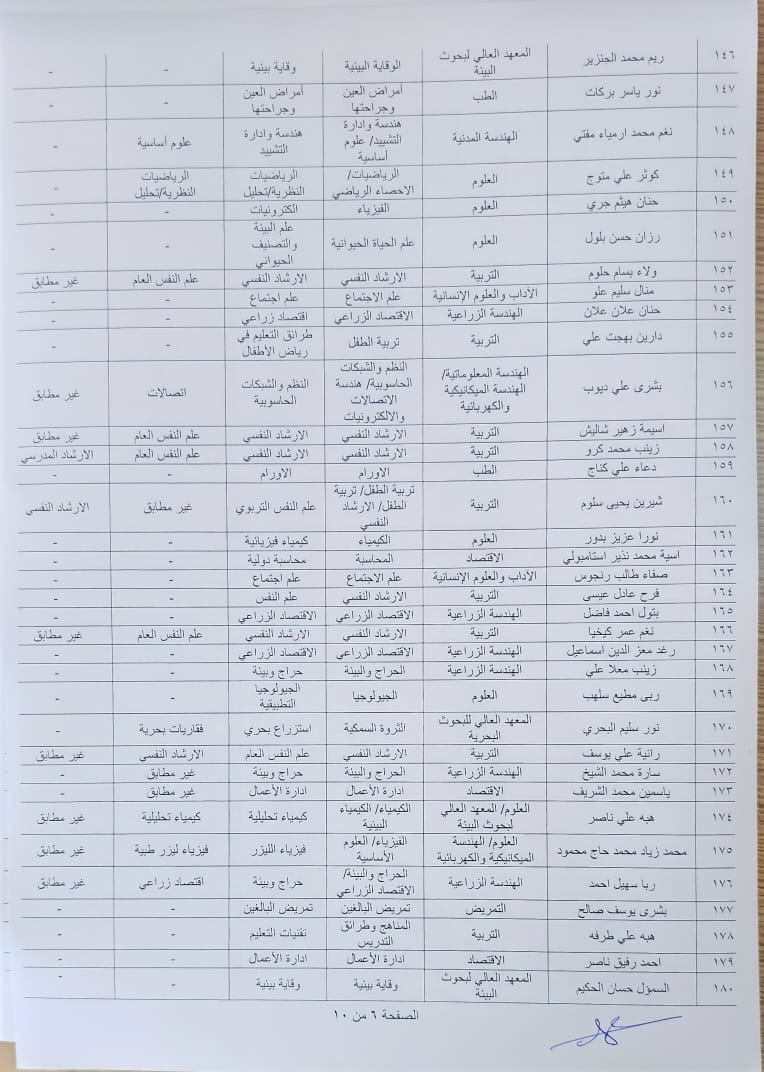 ١٤٦ ريم محمد الجنزير المعهد العالي لبحوث البيئة الوقاية البيئية وقاية بيئية - -
١٤٧ نور ياسر بركات الطب أمراض العين وجراحتها أمراض العين وجراحتها - -
١٤٨ نغم محمد ارمياء مفتي الهندسة المدنية هندسة وادارة التشييد/ علوم أساسية هندسة وادارة التشييد علوم أساسية -
١٤٩ كوثر علي متوج العلوم الرياضيات/ الاحصاء الرياضي الرياضيات النظرية/تحليل الرياضيات النظرية/تحليل -
١٥٠ حنان هيثم جري العلوم الفيزياء الكترونيات - -
١٥١ رزان حسن بلول العلوم علم الحياة الحيوانية علم البيئة والتصنيف الحيواني - -
١٥٢ ولاء بسام حلوم التربية الارشاد النفسي الارشاد النفسي علم النفس العام غير مطابق
١٥٣ منال سليم علو الآداب والعلوم الإنسانية علم الاجتماع علم اجتماع - -
١٥٤ حنان علان علان الهندسة الزراعية الاقتصاد الزراعي اقتصاد زراعي - -
١٥٥ دارين بهجت علي التربية تربية الطفل طرائق التعليم في رياض الأطفال - -
١٥٦ بشرى علي ديوب الهندسة المعلوماتية/ الهندسة الميكانيكية والكهربائية النظم والشبكات الحاسوبية/ هندسة الاتصالات والالكترونيات النظم والشبكات الحاسوبية اتصالات غير مطابق
١٥٧ اسيمة زهير شاليش التربية الارشاد النفسي الارشاد النفسي علم النفس العام غير مطابق
١٥٨ زينب محمد كرو التربية الارشاد النفسي الارشاد النفسي علم النفس العام الارشاد المدرسي
١٥٩ دعاء علي كناج الطب الاورام الاورام - -
١٦٠ شيرين يحيى سلوم التربية تربية الطفل/ تربية الطفل/ الارشاد النفسي علم النفس التربوي غير مطابق الارشاد النفسي
١٦١ نورا عزيز بدور العلوم الكيمياء كيمياء فيزيائية - -
١٦٢ اسية محمد نذير استامبولي الاقتصاد المحاسبة محاسبة دولية - -
١٦٣ صفاء طالب رنجوس الآداب والعلوم الإنسانية علم الاجتماع علم اجتماع - -
١٦٤ فرح عادل عيسى التربية الارشاد النفسي علم النفس - -
١٦٥ بتول احمد فاضل الهندسة الزراعية الاقتصاد الزراعي الاقتصاد الزراعي - -
١٦٦ نغم عمر كيخيا التربية الارشاد النفسي الارشاد النفسي علم النفس العام غير مطابق
١٦٧ رغد معز الدين اسماعيل الهندسة الزراعية الاقتصاد الزراعي الاقتصاد الزراعي - -
١٦٨ زينب معلا علي الهندسة الزراعية الحراج والبيئة حراج وبيئة - -
١٦٩ ربى مطيع سلهب العلوم الجيولوجيا الجيولوجيا التطبيقية - -
١٧٠ نور سليم البحري المعهد العالي للبحوث البحرية الثروة السمكية استزراع بحري فقاريات بحرية -
١٧١ رانية علي يوسف التربية الارشاد النفسي علم النفس العام الارشاد النفسي غير مطابق
١٧٢ سارة محمد الشيخ الهندسة الزراعية الحراج والبيئة حراج وبيئة غير مطابق -
١٧٣ ياسمين محمد الشريف الاقتصاد ادارة الأعمال ادارة الأعمال غير مطابق -
١٧٤ هبه علي ناصر العلوم/ المعهد العالي لبحوث البيئة الكيمياء/ الكيمياء البيئية كيمياء تحليلية كيمياء تحليلية غير مطابق
١٧٥ محمد زياد محمد حاج محمود العلوم/ الهندسة الميكانيكية والكهربائية الفيزياء/ العلوم الأساسية فيزياء الليزر فيزياء ليزر طبية غير مطابق
١٧٦ ربا سهيل احمد الهندسة الزراعية الحراج والبيئة/ الاقتصاد الزراعي حراج وبيئة اقتصاد زراعي غير مطابق
١٧٧ بشرى يوسف صالح التمريض تمريض البالغين تمريض البالغين - -
١٧٨ هبه علي طرفه التربية المناهج وطرائق التدريس تقنيات التعليم - -
١٧٩ احمد رفيق ناصر الاقتصاد ادارة الأعمال ادارة الأعمال - -
١٨٠ السموؤل حسان الحكيم المعهد العالي لبحوث البيئة وقاية بيئية وقاية بيئية - -
الصفحة ٦ من ١٠